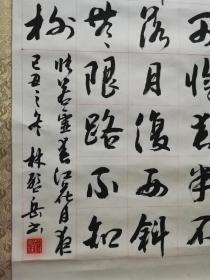 可憐春半不
落月復西斜
無限路不知
樹
張若虛春江花月夜
己丑之冬 林岳书